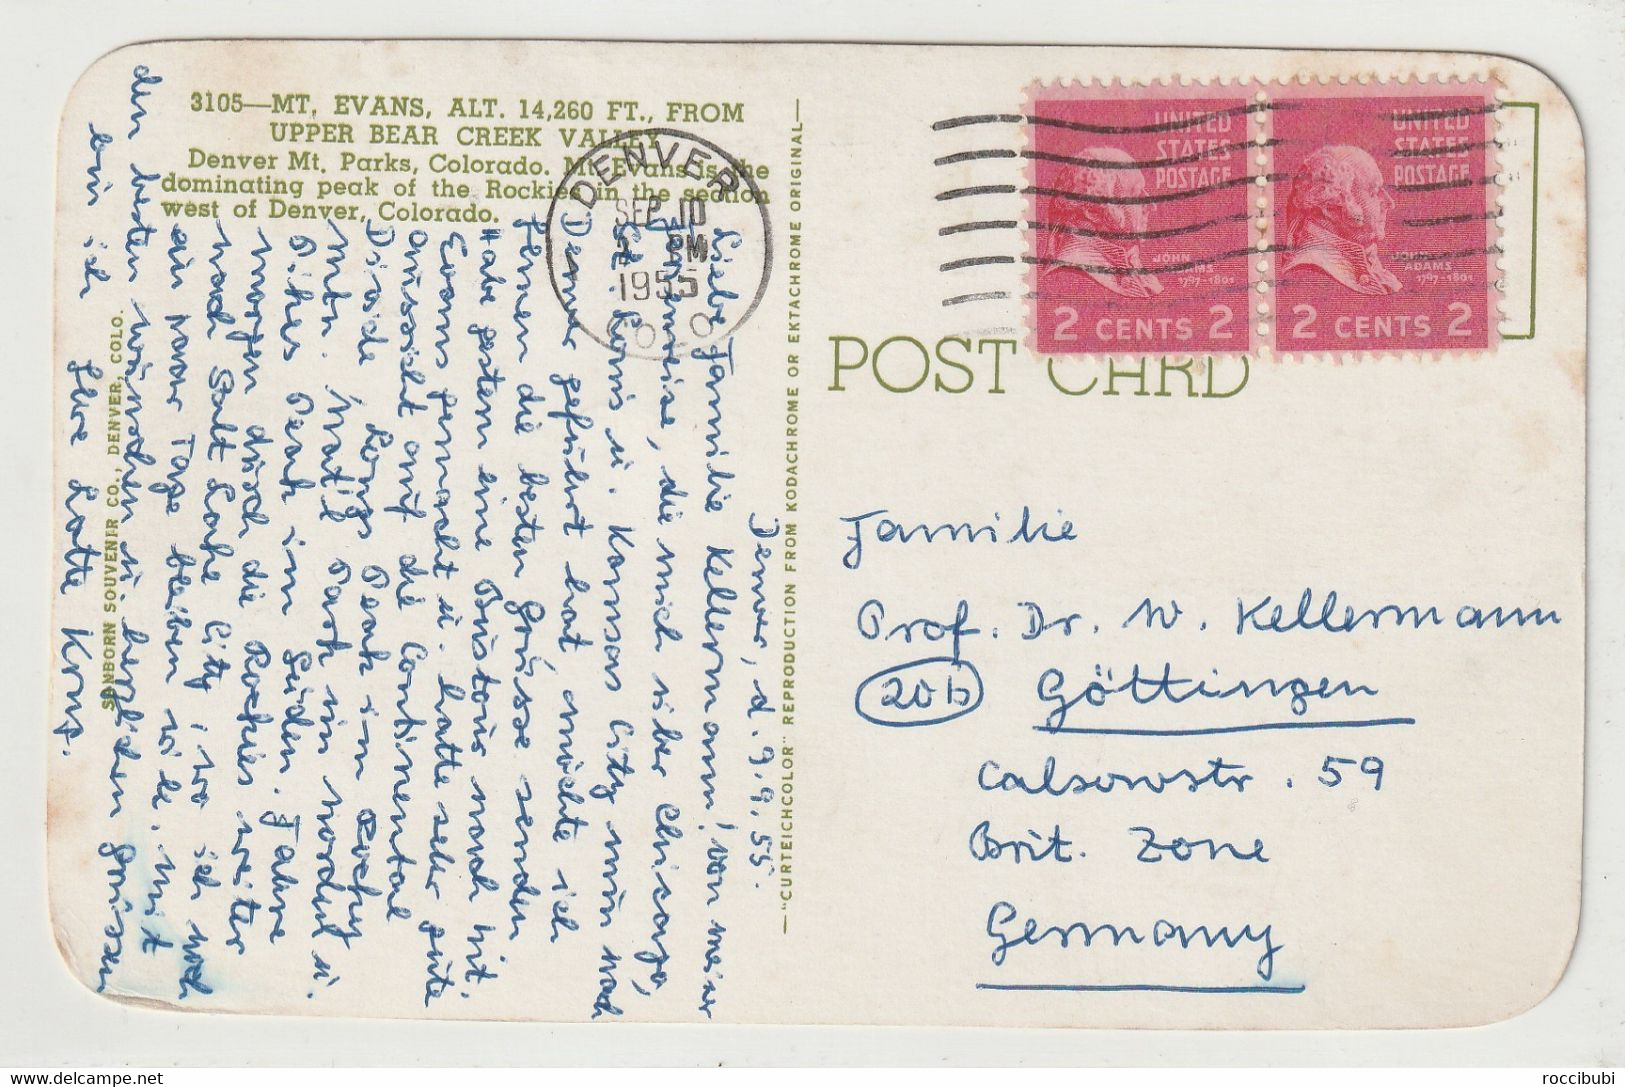 3105—MT. EVANS, ALT. 14,260 FT., FROM
UPPER BEAR CREEK VALLEY
Denver Mt. Parks, Colorado. Mt. Evans is the
dominating peak of the Rockies in the section
west of Denver, Colorado.
SANBORN SOUVENIR CO., DENVER, COLO.
—"CURTEICHCOLOR" REPRODUCTION FROM KODACHROME OR EKTACHROME ORIGINAL—
DENVER
SEP 10
PM
1955
COLO
UNITED
STATES
POSTAGE
JOHN
ADAMS
1797-1801
2 CENTS 2
UNITED
STATES
POSTAGE
JOHN
ADAMS
1797-1801
2 CENTS 2
POST CARD
Denver, d. 9.9.55.
Liebe Familie Kellermann! Von meiner
reise, die mich über Chicago,
St. Louis u. Kansas City nun nach
Denver geführt hat möchte ich
Ihnen die besten Grüsse senden
Habe gestern eine Bustour nach Mt.
Evans gemacht u. hatte sehr gute
Aussicht auf die Continental
Divide Longs Peak im Rocky
Mtn. Nat'l Park im Norden u.
Pikes Peak im Süden. Fahre
morgen durch die Rockies weiter
nach Salt Lake City, wo ich noch
ein paar Tage bleiben will. Mit
den besten Wünschen u. herzlichen Grüssen
bin ich Ihre Lotte
Familie
Prof. Dr. W. Kellermann
20b Göttingen
Calsowstr. 59
Brit. Zone
Germany
delcampe.net
roccibubi